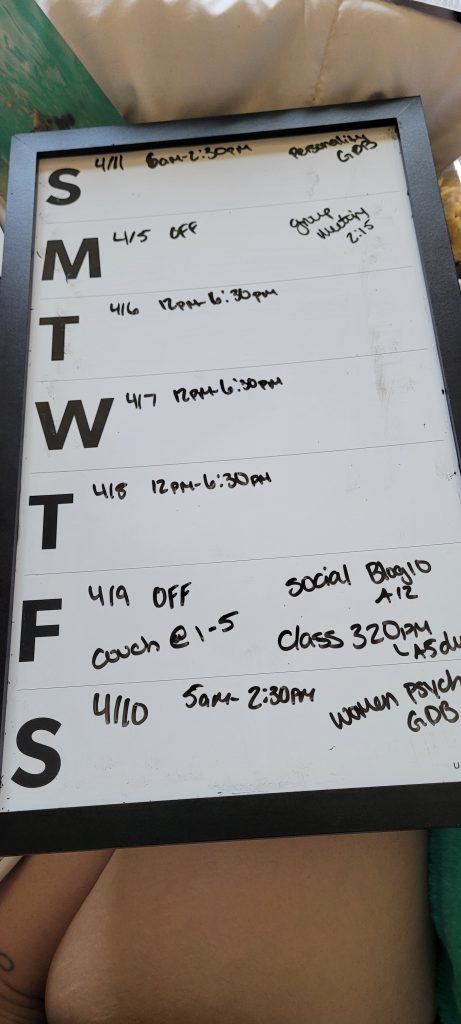 S 4/11 6am-2:30PM Personality
GDB
M 4/5 OFF group
Meeting
2:15
T 4/6 12PM-6:30PM
W 4/7 12PM-6:30PM
T 4/8 12PM-6:30PM
F 4/9 OFF social Blog10
A12
couch @ 1-5 Class 320PM
A5 du
S 4/10 5am-2:30PM women psych
GDB